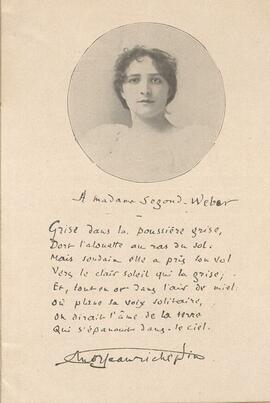 A madame Segond-Weber
Grise dans la poussière grise,
Dort l'alouette au ras du sol.
Mais soudain elle a pris son vol
Vers le clair soleil qui la grise;
Et, tout en or dans l'air de miel
Où plane sa voix solitaire,
On dirait l'âme de la terre
Qui s'épanouit dans le ciel.
Jean Richepin